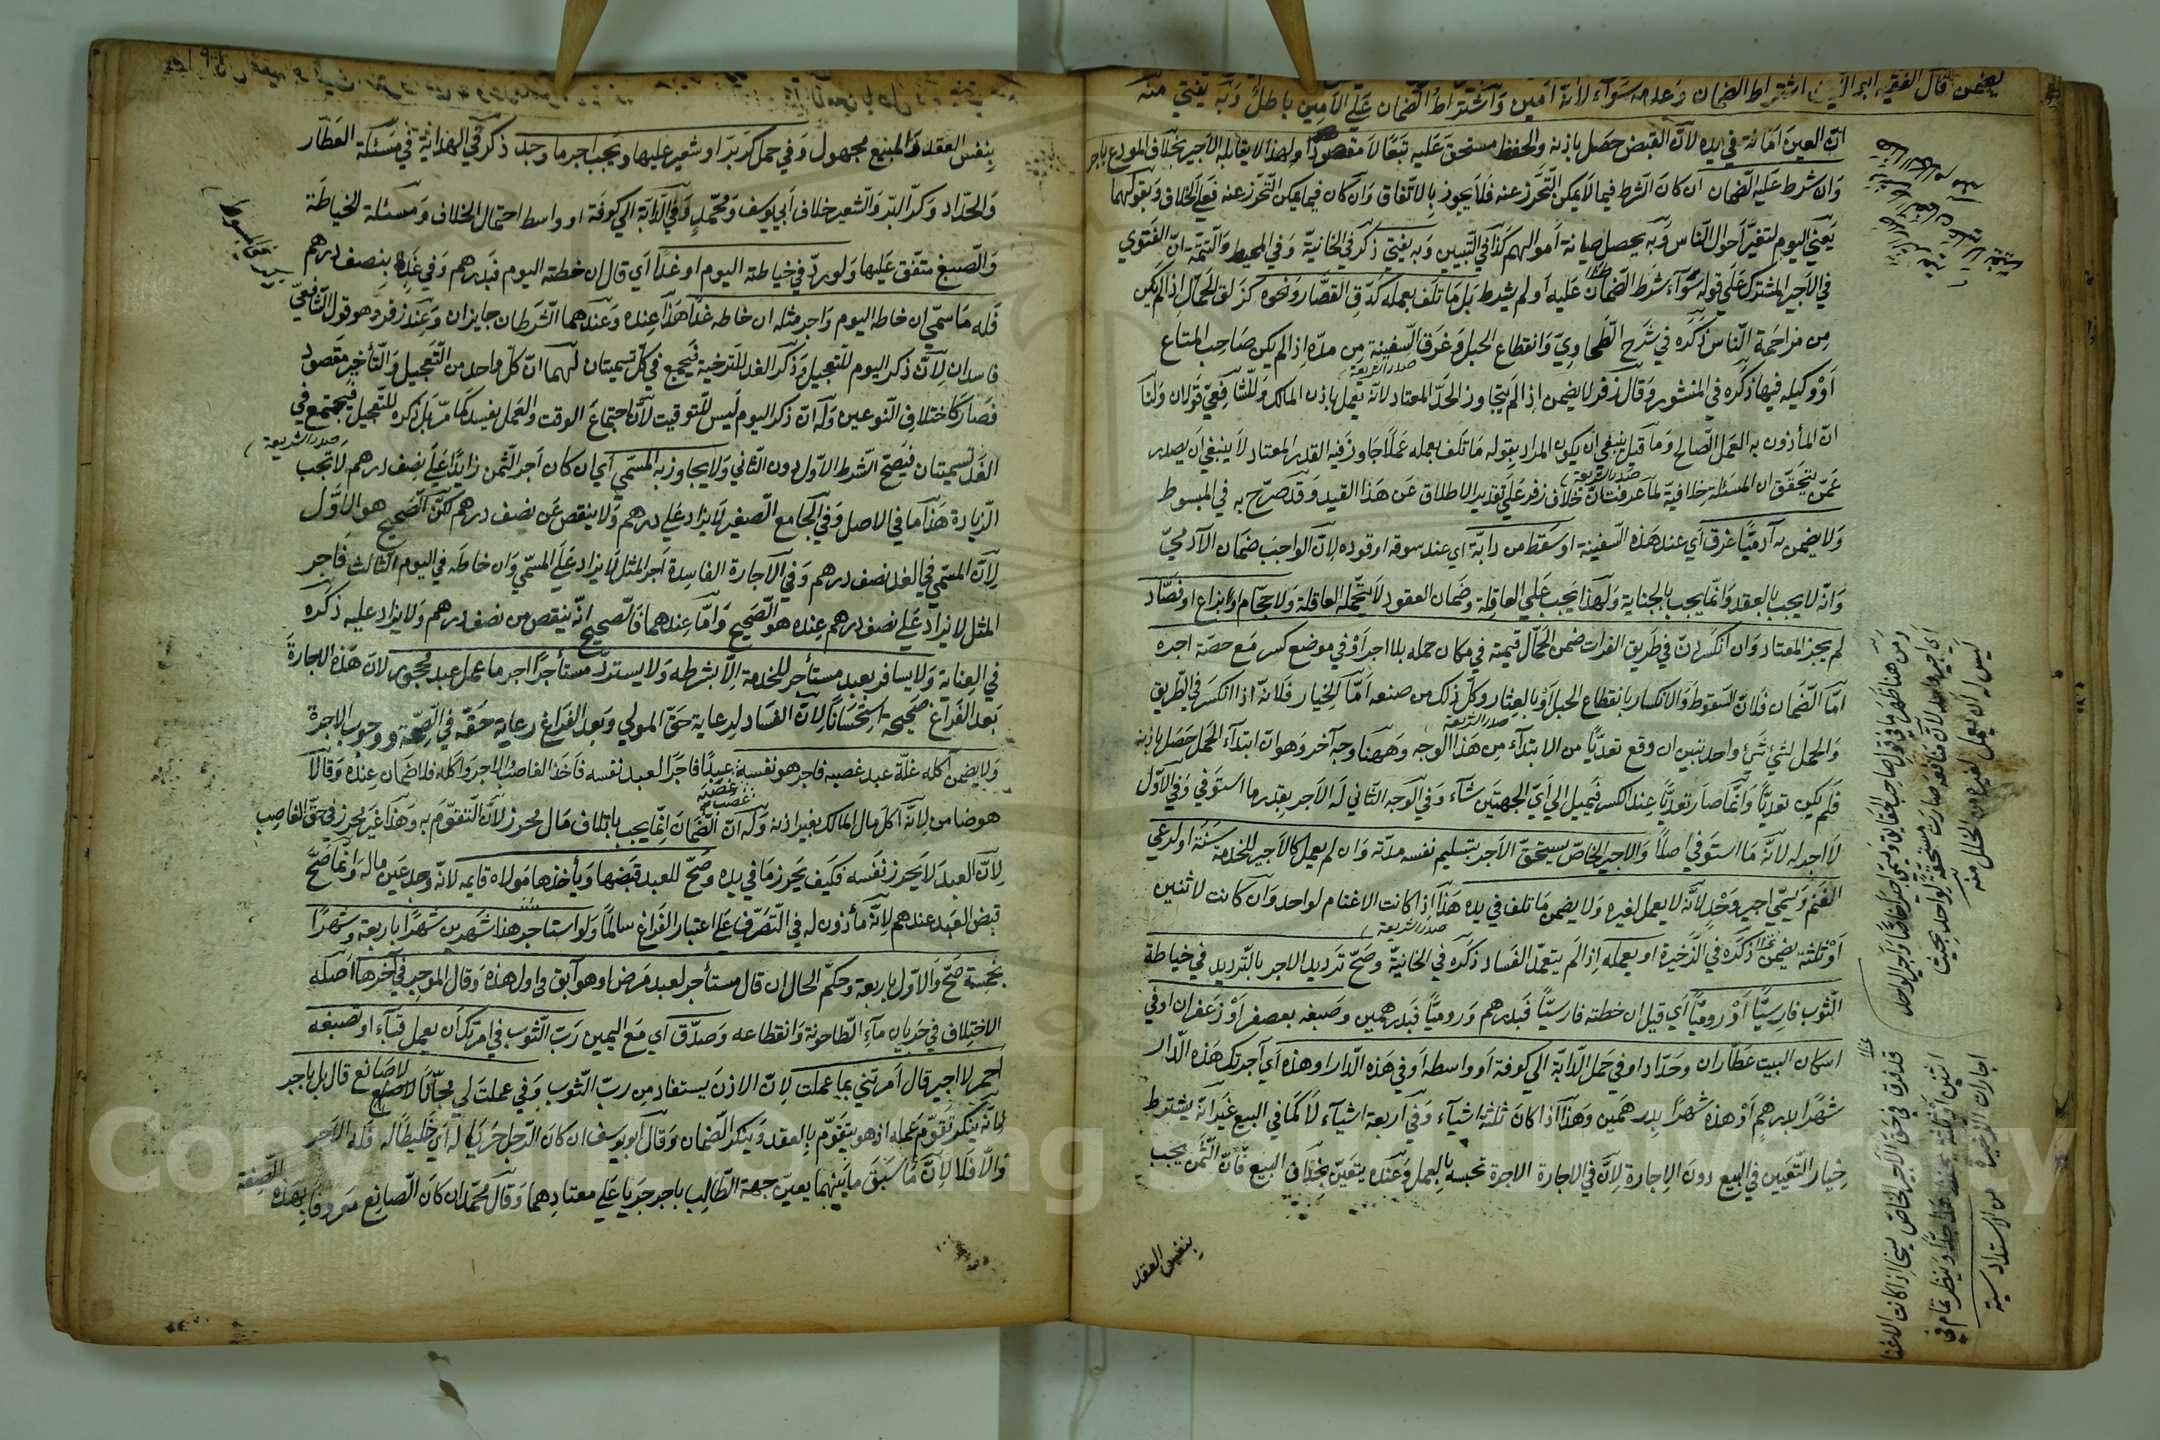 يضمن قال الفقيه ابو الليث اشتراط الضمان وعدمه سواء لانه امين واشتراط الضمان على الامين باطل وبه يفتي منه
ان العين امانة في يده لان القبض حصل باذنه والحفظ مستحق عليه تبعا لا مقصودا ولهذا لا يقابله الاجر بخلاف المودع باجر
وان شرط عليه الضمان ان كان الشرط فيما لا يمكن التحرز عنه فلا يجوز بالاتفاق وان كان فيما يمكن التحرز عنه فعلى الخلاف وبقولهما
يفتي اليوم لتغير احوال الناس وبه يحصل صيانة اموالهم كذا في التبيين وبه يفتي ذكر في الخانية وفي المحيط والتتمة ان الفتوى
في الاجير المشترك على قوله سواء شرط الضمان عليه او لم يشرط بل ما تلف بعمله كدق القصار ونحوه كزلق الحمال اذا لم يكن
من مزاحمة الناس ذكره في شرح الطحاوي وانقطاع الحبل وغرق السفينة من مده اذا لم يكن صاحب المتاع
او وكيله فيها ذكره في المنشور وقال زفر لا يضمن اذا لم يتجاوز الحد المعتاد لانه يعمل باذن المالك وللشافعي قولان ولنا
صدر الشريعة
ان المأذون به العمل الصالح وما قيل ينبغي ان يكون المراد بقوله ما تلف بعمله عملا جاوز فيه القدر المعتاد لا ينبغي ان يصدر
عمن تحقق ان المسئلة خلافية لما عرفت ان خلاف زفر على تقدير الاطلاق عن هذا القيد وقد صرح به في المبسوط
صدر الشريعة
ولا يضمن به آدميا غرق اي عند هذه السفينة او سقط من دابة اي عند سوقه او قوده لان الواجب ضمان الآدمي
وانه لا يجب بالعقد وانما يجب بالجناية ولهذا يجب على العاقلة وضمان العقود لا تتحمله العاقلة ولا حجام او بزاغ او فصاد
لم يجز المعتاد وان انكسر دن في طريق الفرات ضمن الحمال قيمته في مكان حمله بلا اجر او في موضع كسر مع حصة اجره
اما الضمان فلان السقوط والانكسار بانقطاع الحبل او بالعثار وكل ذلك من صنعه اما الخيار فلانه اذا انكسر في الطريق
والحمل شئ واحد تبين ان وقع تعديا من الابتداء من هذا الوجه وههنا وجه آخر وهو ان ابتداء الحمل حصل باذنه
صدر الشريعة
فلم يكن تعديا وانما صار تعديا عند الكسر فيميل الى اي الجهتين شاء وفي الوجه الثاني له الاجر بقدر ما استوفى وفي الاول
لا اجر له لانه ما استوفى اصلا والاجير الخاص يستحق الاجر بتسليم نفسه مدته وان لم يعمل كالاجير للخدمة سنة او لرعي
الغنم وسمي اجير وحد لانه لا يعمل لغيره ولا يضمن ما تلف في يده هذا اذا كانت الاغنام لواحد وان كانت لاثنين
او ثلثة يضمن ذكره في الذخيرة او بعمله اذا لم يتعمد الفساد ذكره في الخانية وصح ترديد الاجر بالترديد في خياطة
صدر الشريعة
الثوب فارسيا او روميا اي قيل ان خطته فارسيا فبدرهم وروميا فبدرهمين وصبغه بعصفر او زعفران او في
اسكان البيت عطارا او حدادا او في حمل الدابة الى كوفة او واسط او في هذه الدار او هذه اي آجرتك هذه الدار
شهرا بدرهم او هذه شهرا بدرهمين وهذا اذا كان ثلثة اشياء وفي اربعة اشياء لا كما في البيع غير انه يشترط
خيار التعيين في البيع دون الاجارة لان في الاجارة الاجرة تجب بالعمل وعنده يتعين بخلاف البيع فان الثمن يجب
بنفس العقد
ومن هنا ظهر ما في قول صاحب الحقائق ويسمى اجيرا خاصا واجير الواحد
اي اجير واحد لان منافعه صارت مستحقة لواحد بحيث
ليس له ان يعمل لغيره
قد فرق في حق الاجير الخاص بينما اذا كانت الاغنام
اجارات الذخيرة
بنفس العقد والمبيع مجهول وفي حمل كر بر او شعير عليها ويجب اجر ما وجد ذكر في الهداية في مسئلة العطار
والحداد وكر البر والشعير خلاف ابي يوسف ومحمد وفي الدابة الى كوفة او واسط احتمال الخلاف ومسئلة الخياطة
والصبغ متفق عليها ولو ردد في خياطته اليوم او غدا اي قال ان خطته اليوم فبدرهم وفي غد بنصف درهم
فله ما سمى ان خاطه اليوم واجر مثله ان خاطه غدا هذا عنده وعندهما الشرطان جائزان وعند زفر وهو قول الشافعي
فاسدان لان ذكر اليوم للتعجيل وذكر الغد للترخية فيجمع في كل تسميتان لهما ان كل واحد من التعجيل والتأخير مقصود
فصار كاختلاف النوعين وله ان ذكر اليوم ليس للتوقيت لان اجتماع الوقت والعمل يفسد كما مر بل ذكره للتعجيل فيجتمع في
الغد تسميتان فيصح الشرط الاول دون الثاني ولا يجاوز به المسمى اي ان كان اجر الثمن زايدا على نصف درهم لا تجب
صدر الشريعة
الزيادة هذا ما في الاصل وفي الجامع الصغير لا يزاد على درهم ولا ينقص عن نصف درهم لكن الصحيح هو الاول
لان المسمى في الغد نصف درهم وفي الاجارة الفاسدة اجر المثل لا يزاد على المسمى وان خاطه في اليوم الثالث فاجر
المثل لا يزاد على نصف درهم عنده هو الصحيح واما عندهما فالصحيح انه ينقص من نصف درهم ولا يزاد عليه ذكره
في العناية ولا يسافر بعبد مستأجر للخدمة الا بشرطه ولا يسترد مستأجر اجر ما عمل عبد محجور لان هذه الاجارة
بعد الفراغ صحيحة استحسانا لان الفساد لرعاية حق المولى وبعد الفراغ رعاية حقه في الصحة ووجوب الاجرة
ولا يضمن آكله غلة عبد غصبه فاجر هو نفسه عبدا فاجر العبد نفسه فاخذ الغاصب الاجر واكله فلا ضمان عنده وقالا
هو ضامن لانه اكل مال المالك بغير اذنه وله ان الضمان انما يجب باتلاف مال محرز لان التقوم به وهذا غير محرز في حق الغاصب
لان العبد لا يحرز نفسه فكيف يحرز ما في يده وصح للعبد قبضها ويأخذها مولاه قايمة لانه وجد عين ماله وانما صح
قبض العبد عندهم لانه مأذون له في التصرف على اعتبار الفراغ سالما ولو استاجر هذا شهرين شهرا باربعة وشهرا
بخمسة صح والاول باربعة وحكم الحال ان قال مستأجر لعبد مرض او هو آبق في اول هذه وقال الموجر في آخرها اصله
الاختلاف في جريان ماء الطاحونة وانقطاعه وصدق اي مع اليمين رب الثوب في امرتك ان يعمل قباء او تصبغه
احمر لا اجير قال امرتني بما عملت لان الاذن يستفاد من رب الثوب وفي عملت لي مجانا لا صانع قال بل باجر
لانه ينكر تقوم عمله اذ هو يتقوم بالعقد وينكر الضمان وقال ابو يوسف ان كان الرجل حريفا له اي خليطا له فله الاجر
والا فلا لان ما سبق ما بينهما يعين جهة الطالب باجر جريا على معتادهما وقال محمد ان كان الصانع معروفا بهذه الصفة
Copyright © King Saud University